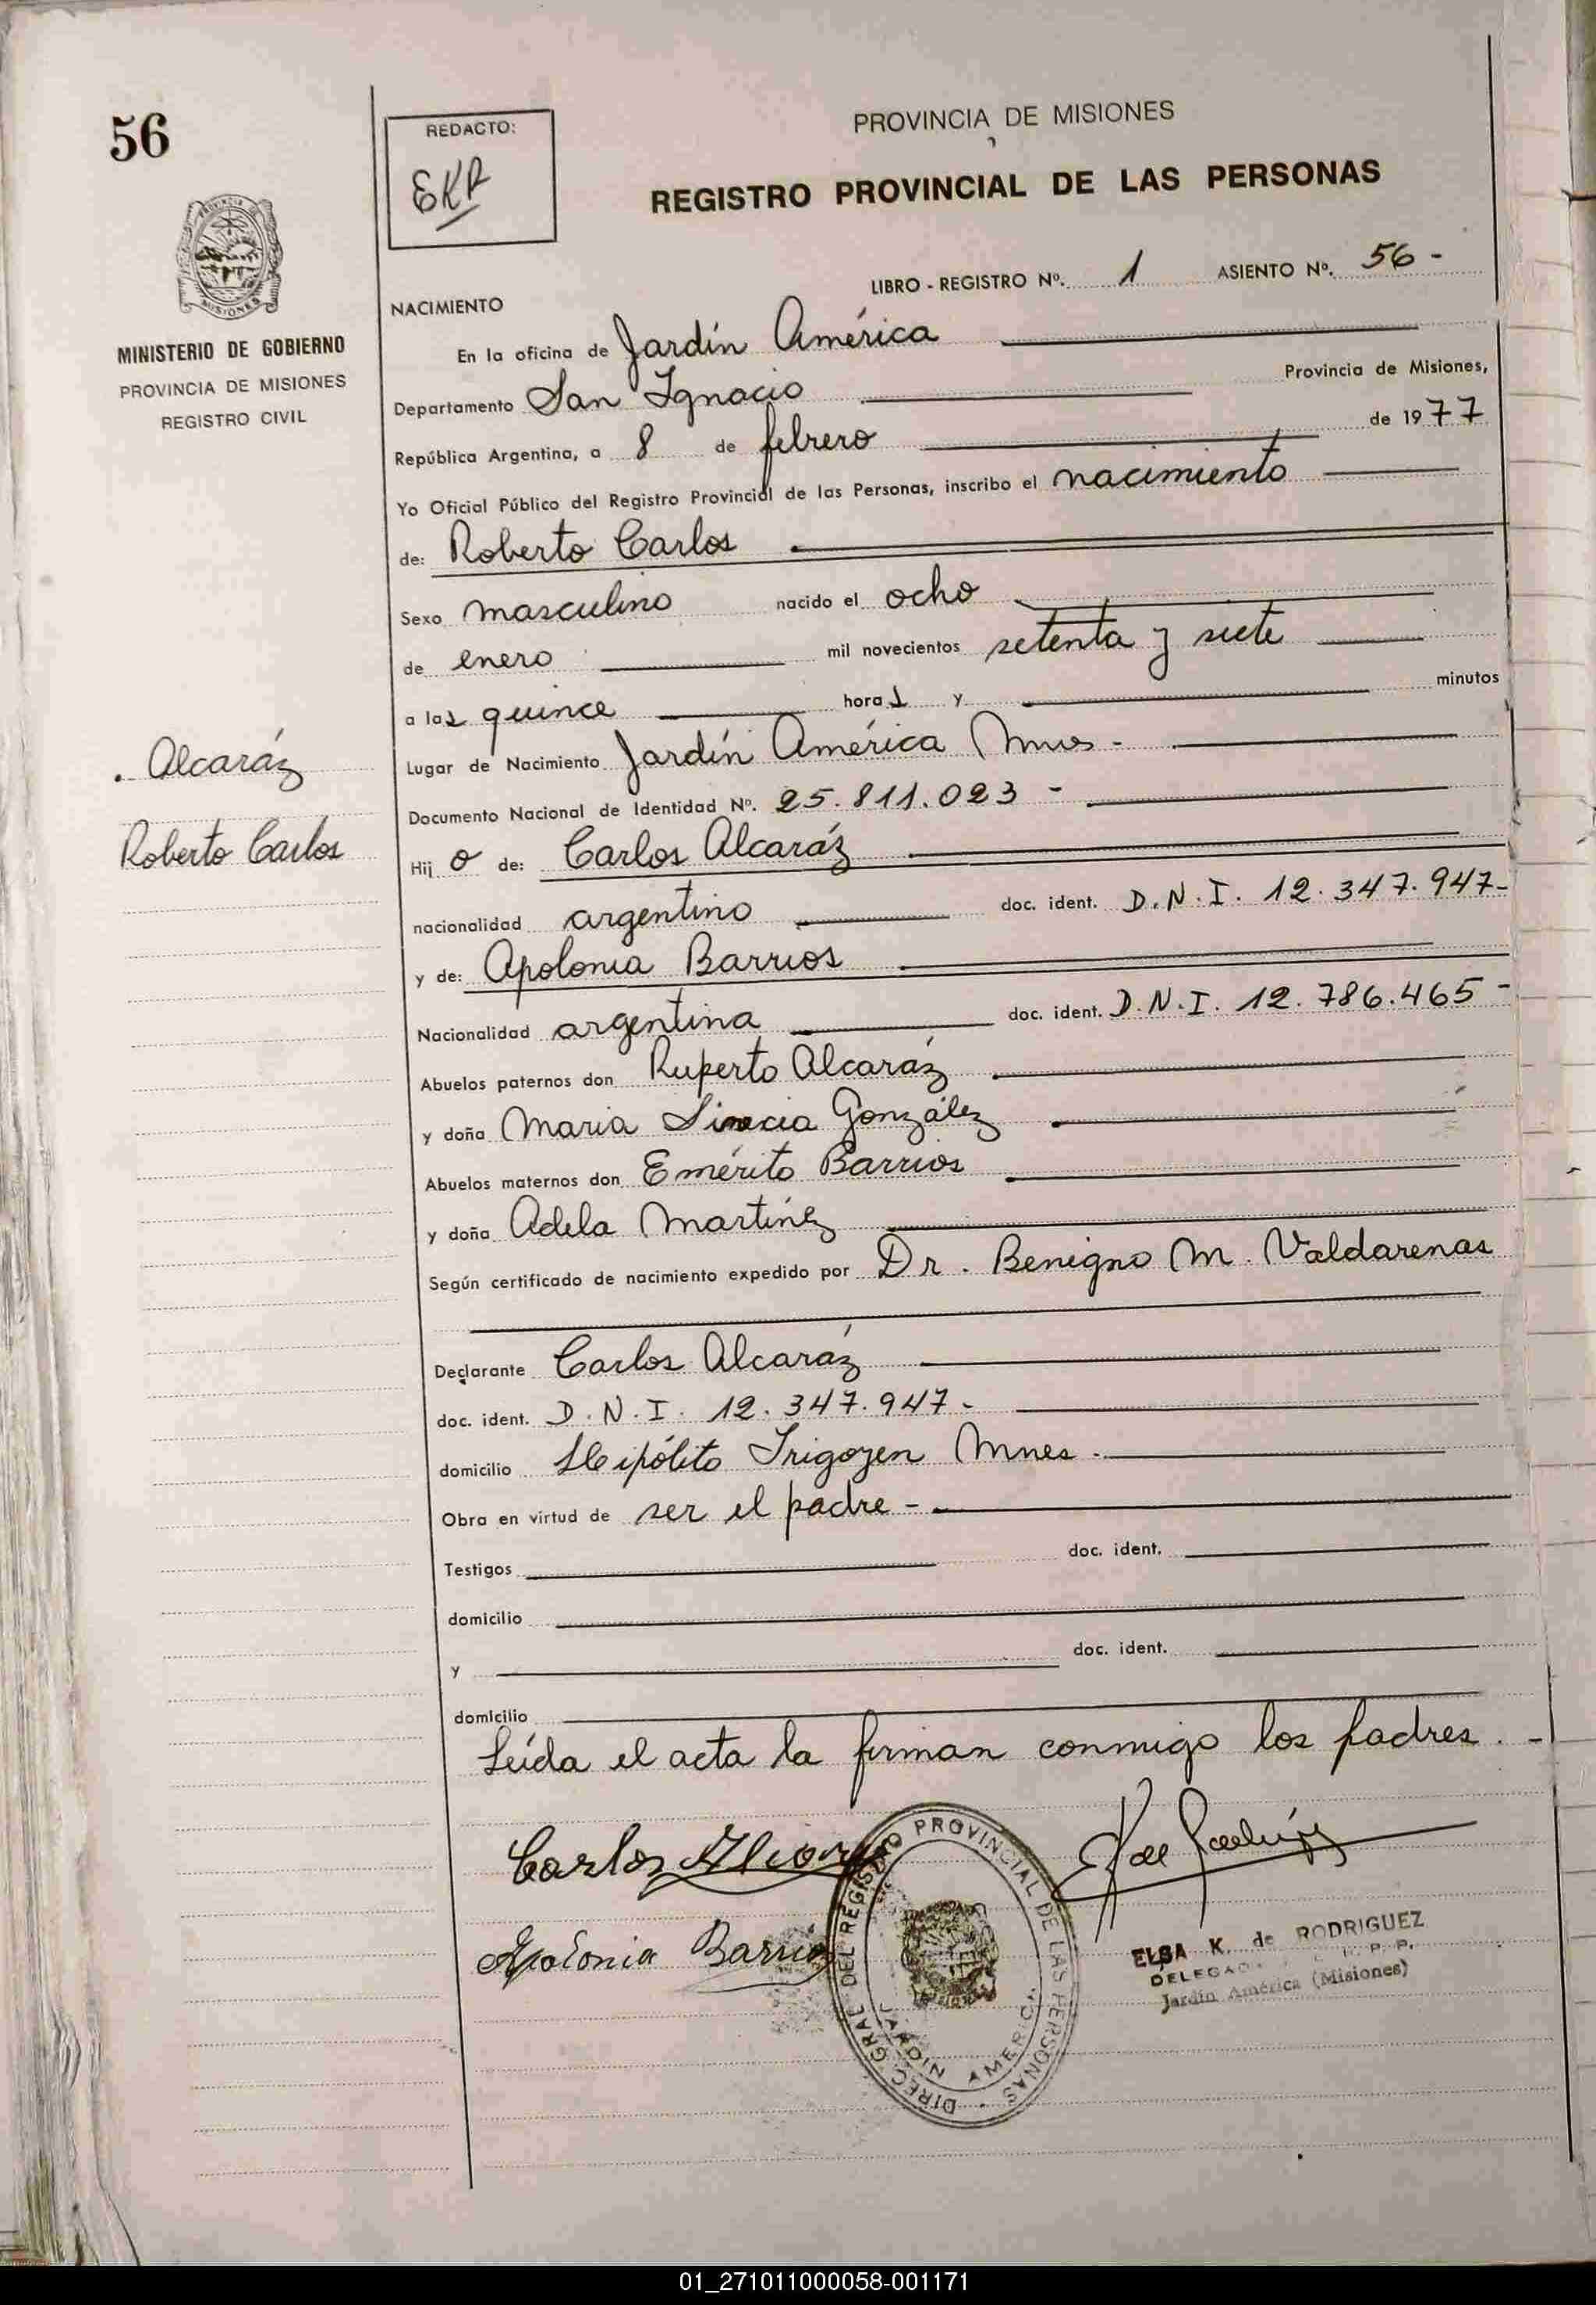 56
REDACTO:
EKR
PROVINCIA DE MISIONES
REGISTRO PROVINCIAL DE LAS PERSONAS
PROVINCIA DE
MISIONES
MINISTERIO DE GOBIERNO
PROVINCIA DE MISIONES
REGISTRO CIVIL
LIBRO - REGISTRO Nº. 1 ASIENTO Nº. 56 -
NACIMIENTO
En la oficina de Jardín América
Departamento San Ignacio Provincia de Misiones,
República Argentina, a 8 de febrero de 1977
Yo Oficial Público del Registro Provincial de las Personas, inscribo el nacimiento
de: Roberto Carlos
Sexo masculino nacido el ocho
de enero mil novecientos setenta y siete
a las quince horas y minutos
Lugar de Nacimiento Jardín América Mnes -
Documento Nacional de Identidad Nº. 25.811.023 -
Alcaráz
Roberto Carlos
Hijo de: Carlos Alcaráz
nacionalidad argentino doc. ident. D.N.I. 12.347.947-
y de: Apolonia Barrios
Nacionalidad argentina doc. ident. D.N.I. 12.786.465 -
Abuelos paternos don Ruperto Alcaráz
y doña Maria González
Abuelos maternos don Emérito Barrios
y doña Adela Martínez
Según certificado de nacimiento expedido por Dr. Benigno M. Valdarenas
Declarante Carlos Alcaráz
doc. ident. D.N.I. 12.347.947-
domicilio Hipólito Irigoyen Mnes -
Obra en virtud de ser el padre -
Testigos doc. ident.
domicilio
y doc. ident.
domicilio
Leída el acta la firman conmigo los padres. -
Carlos
Apolonia Barrios
DIREC. GRAL DEL REGISTRO PROVINCIAL DE LAS PERSONAS
JARDIN AMERICA
ELSA K. de RODRIGUEZ
Jardín América (Misiones)
01_271011000058-001171